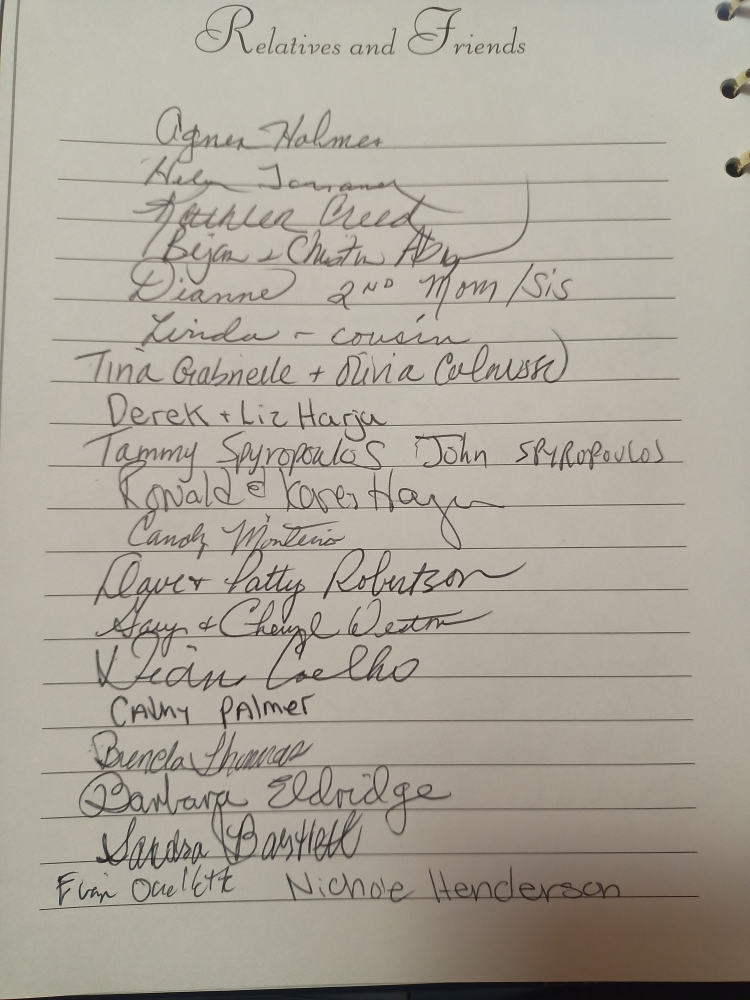 Relatives and Friends
Agnes Holmes
Helen
Kathleen Creed
Bijan & Christin
Dianne 2ND Mom/Sis
Linda - cousin
Tina Gabrielle + Olivia
Derek + Liz Harju
Tammy Spyropoulos John SPYROPOULOS
Ronald & Karen Hagen
Candy Monteiro
Dave + Patty Robertson
Gary & Cheryl Weston
Dean Coelho
CAthy PAlmer
Brenda Thomas
Barbara Eldridge
Sandra Bartlett
Evan Ouellette Nichole Henderson